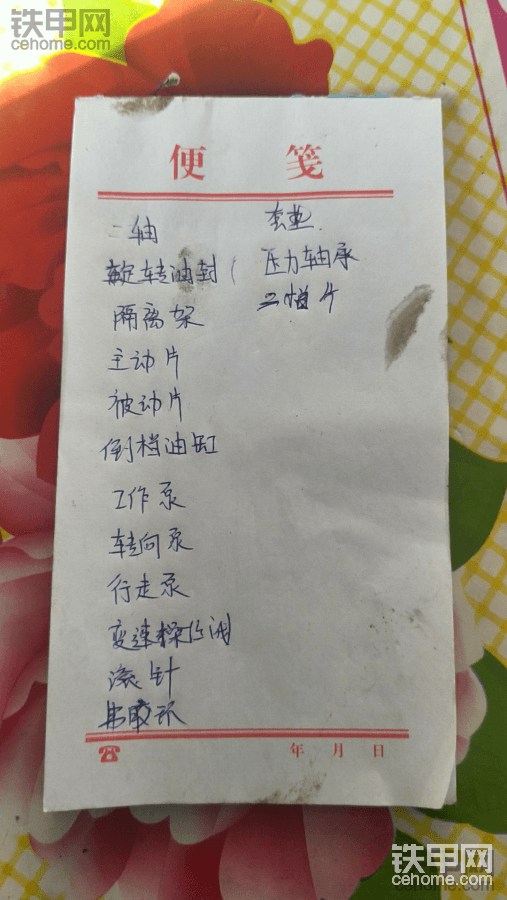 铁甲网
cehome.com
便 笺
二轴
旋转油封
隔离架
主动片
被动片
倒档油缸
工作泵
转向泵
行走泵
变速操
滚针
胶环
套垫
压力轴承
二档片
年 月 日
铁甲网
cehome.com